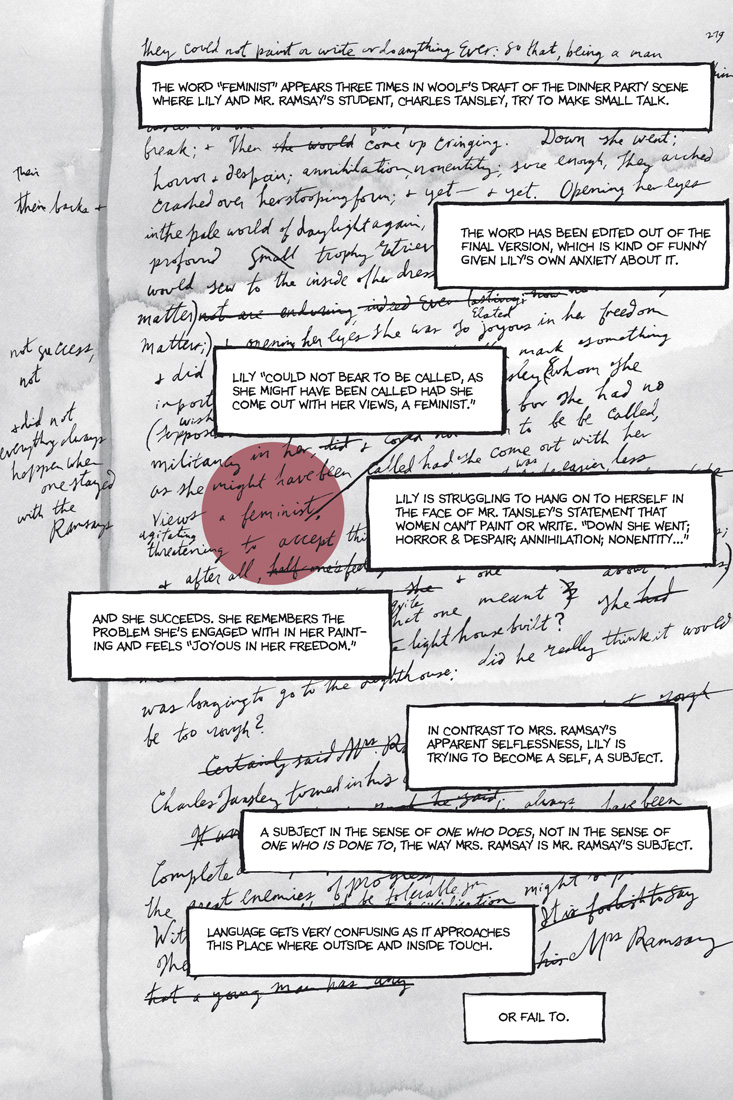 219
They could not paint or write or do anything Ever: so that, being a man
THE WORD "FEMINIST" APPEARS THREE TIMES IN WOOLF'S DRAFT OF THE DINNER PARTY SCENE
WHERE LILY AND MR. RAMSAY'S STUDENT, CHARLES TANSLEY, TRY TO MAKE SMALL TALK.
break; + Then she would come up cringing. Down she went;
Their
horror + despair; annihilation, nonentity; sure enough, They arched
their backs +
crashed over her stooping form; + yet — + yet. Opening her eyes
in the pale world of daylight again,
THE WORD HAS BEEN EDITED OUT OF THE
FINAL VERSION, WHICH IS KIND OF FUNNY
GIVEN LILY'S OWN ANXIETY ABOUT IT.
profound Small trophy
would sew to the inside of her dress
matter) not are enduring, indeed Ever lasting; now
Elated
Matter;) + opening her eyes she was so joyous in her freedom
not success,
not
+ did
mark + something
LILY "COULD NOT BEAR TO BE CALLED, AS
SHE MIGHT HAVE BEEN CALLED HAD SHE
COME OUT WITH HER VIEWS, A FEMINIST."
whom she
import
she had no
wish
(Suppose
to be be called,
+ did not
everything always
happen when
one stayed
with the
Ramsays
militancy in her, did + could
as she might have been called had she come out with her
was
easier, less
views a feminist,
LILY IS STRUGGLING TO HANG ON TO HERSELF IN
THE FACE OF MR. TANSLEY'S STATEMENT THAT
WOMEN CAN'T PAINT OR WRITE. "DOWN SHE WENT;
HORROR & DESPAIR; ANNIHILATION; NONENTITY..."
agitating
threatening to accept
+ after all, half one's
she + one about
quite
AND SHE SUCCEEDS. SHE REMEMBERS THE
PROBLEM SHE'S ENGAGED WITH IN HER PAINT-
ING AND FEELS "JOYOUS IN HER FREEDOM."
one meant ? She had
lighthouse built? did he really think it would
was longing to go to the lighthouse;
be too rough?
rough
Certainly said Mrs. Ra
IN CONTRAST TO MRS. RAMSAY'S
APPARENT SELFLESSNESS, LILY IS
TRYING TO BECOME A SELF, A SUBJECT.
Charles Tansley turned in his
he said; always have been
It was
A SUBJECT IN THE SENSE OF ONE WHO DOES, NOT IN THE SENSE OF
ONE WHO IS DONE TO, THE WAY MRS. RAMSAY IS MR. RAMSAY'S SUBJECT.
Complete
of progress
the great enemies of be tolerable in
civilisation might
It is foolish to say
LANGUAGE GETS VERY CONFUSING AS IT APPROACHES
THIS PLACE WHERE OUTSIDE AND INSIDE TOUCH.
Wit
The
his Mrs Ramsay
that a young man has any
OR FAIL TO.